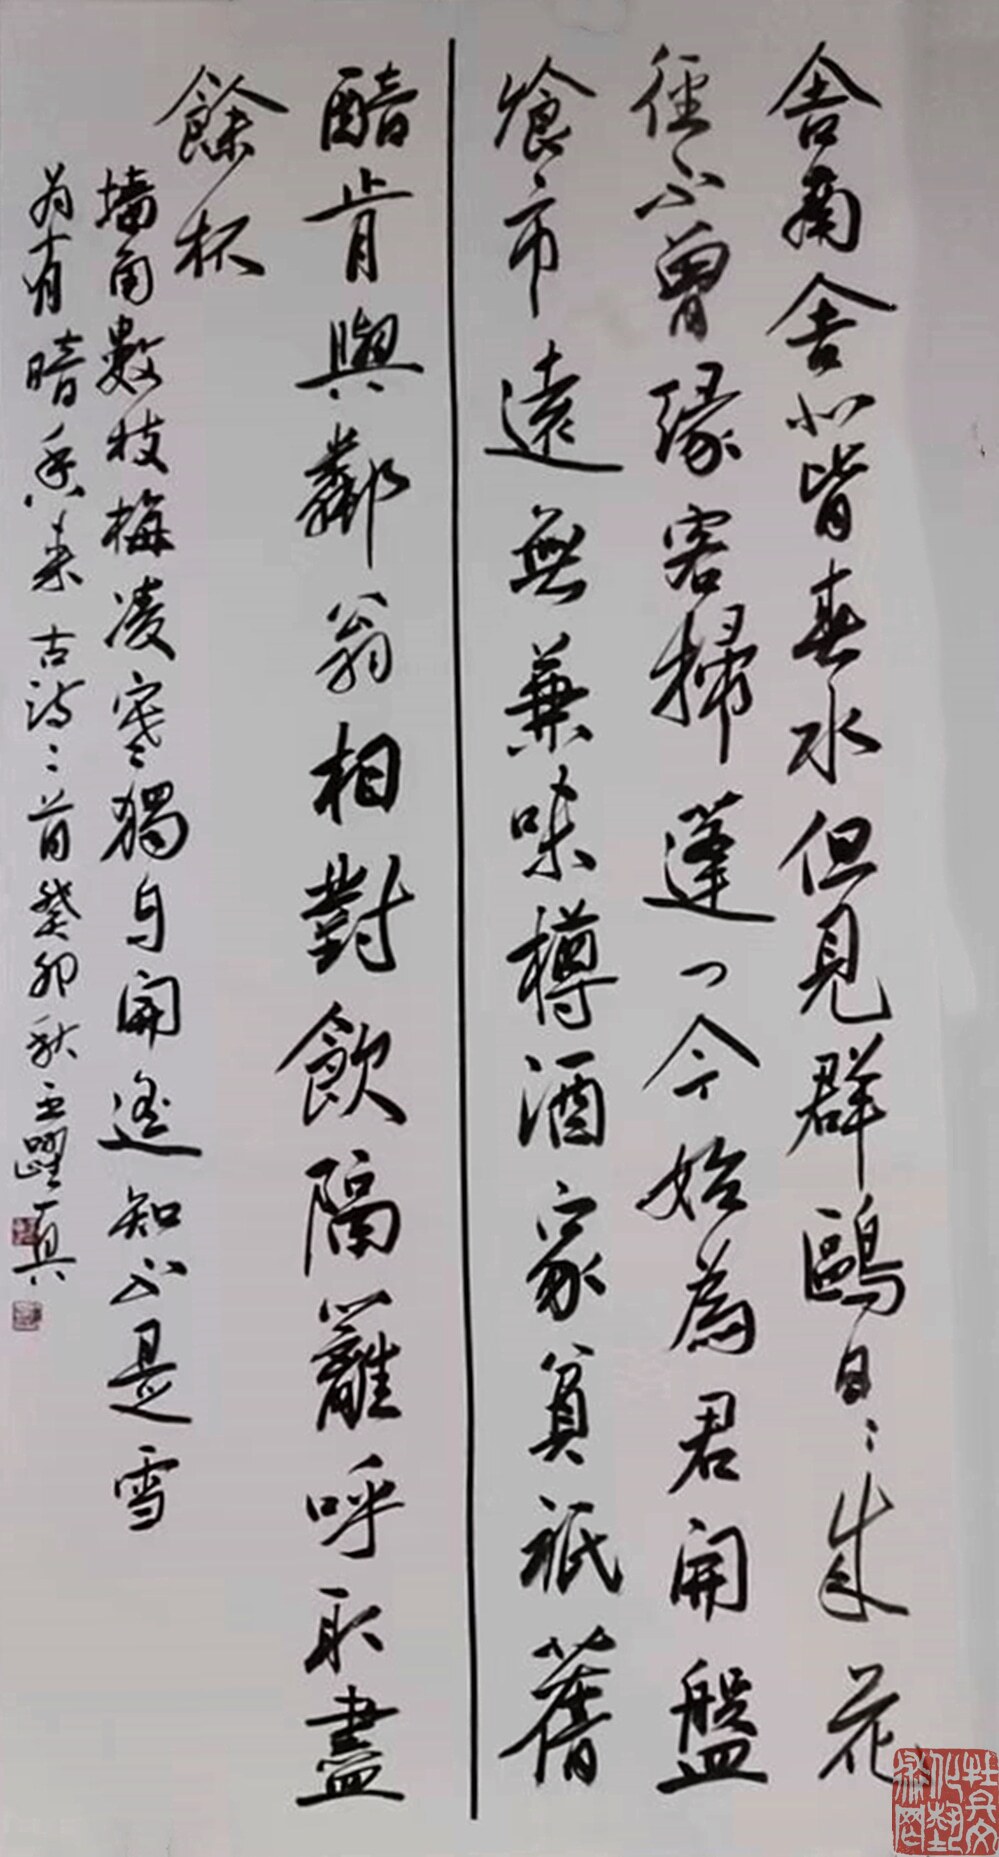 舍南舍北皆春水但見群鷗日〻来花
徑不曾緣客掃蓬门今始為君開盤
飧市遠無兼味樽酒家貧祇舊
醅肯與鄰翁相對飲隔籬呼取盡
餘杯
墙角數枝梅凌寒獨自開遙知不是雪
为有暗香来古诗二首癸卯秋王躍真